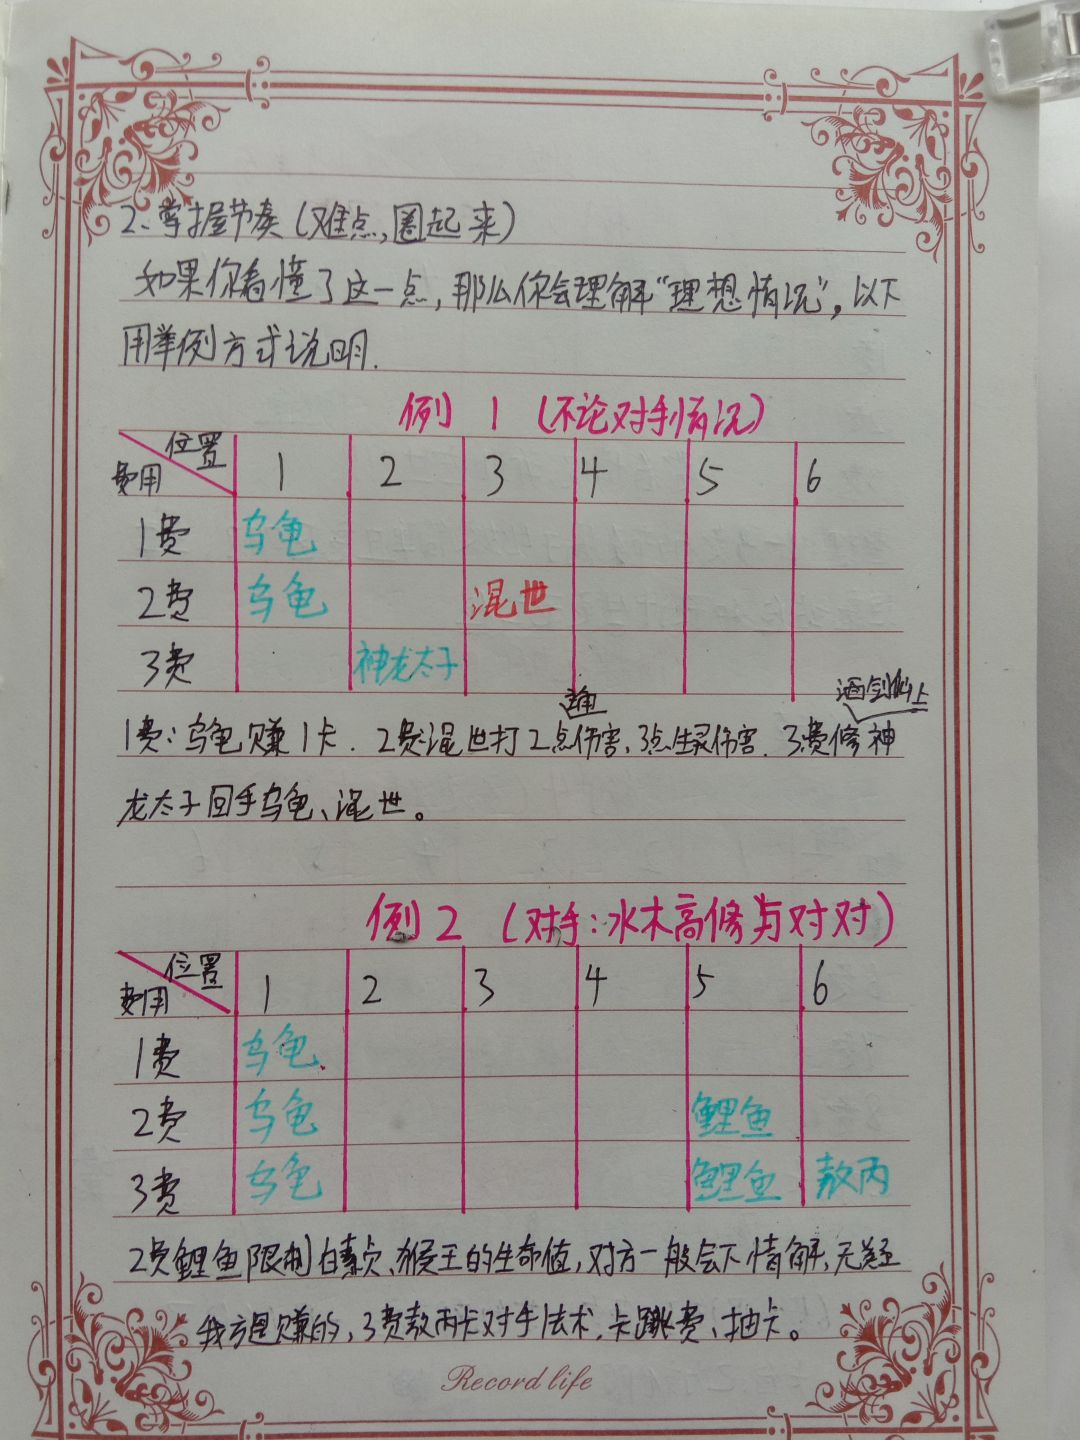 2、掌握节奏(难点,圈起来)
如果你看懂了这一点,那么你会理解“理想情况”,以下
用举例方式说明.
例 1 (不论对手情况)
位置 费用 1 2 3 4 5 6
1费 乌龟
2费 乌龟 混世
3费 神龙太子
普通 酒剑仙上
1费:乌龟赚1卡.2费:混世打2点伤害、3点生灵伤害.3费修神
龙太子回手乌龟、混世。
例2 (对手:水木高修与对对)
位置 费用 1 2 3 4 5 6
1费 乌龟
2费 乌龟 鲤鱼
3费 乌龟 鲤鱼 敖丙
2费鲤鱼限制白素贞、猴王的生命值,对方一般会下情解,无疑
我方是赚的,3费敖丙卡对手法术,卡跳费、抽卡。
Record life